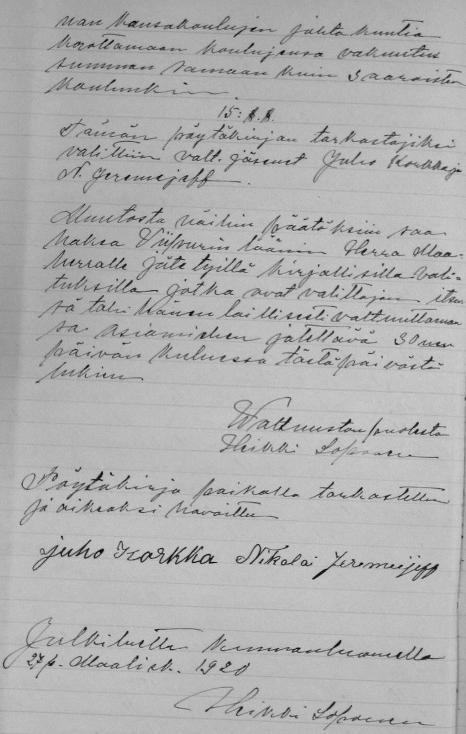 nan kansakoulujen johtokuntia
korottamaan koulujensa vakuutus
summan samaan kuin Saaroisten
koulunkin.
15: §.§.
Tämän pöytäkirjan tarkastajiksi
valittiin valt. jäsenet Juho Korkka ja
N. Jeremejeff.
Muutosta näihin päätöksiin saa
hakea Viipurin läänin Herra Maa-
herralle jätetyillä kirjallisilla vali-
tuksilla jotka ovat valittajan itsen
sä tahi hänen laillisesti valtuuttaman
sa asiamiehen jätettävä 30nen
päivän kuluessa tästä päivästä
lukien.
Waltuuston puolesta
Heikki Soponen
Pöytäkirja paikalla tarkastettu
ja oikeaksi havaittu
Juho Korkka Nikolai Jeremeijeff
Julkiluettu kunnanhuoneella
27 p. Maalisk. 1920
Heikki Soponen